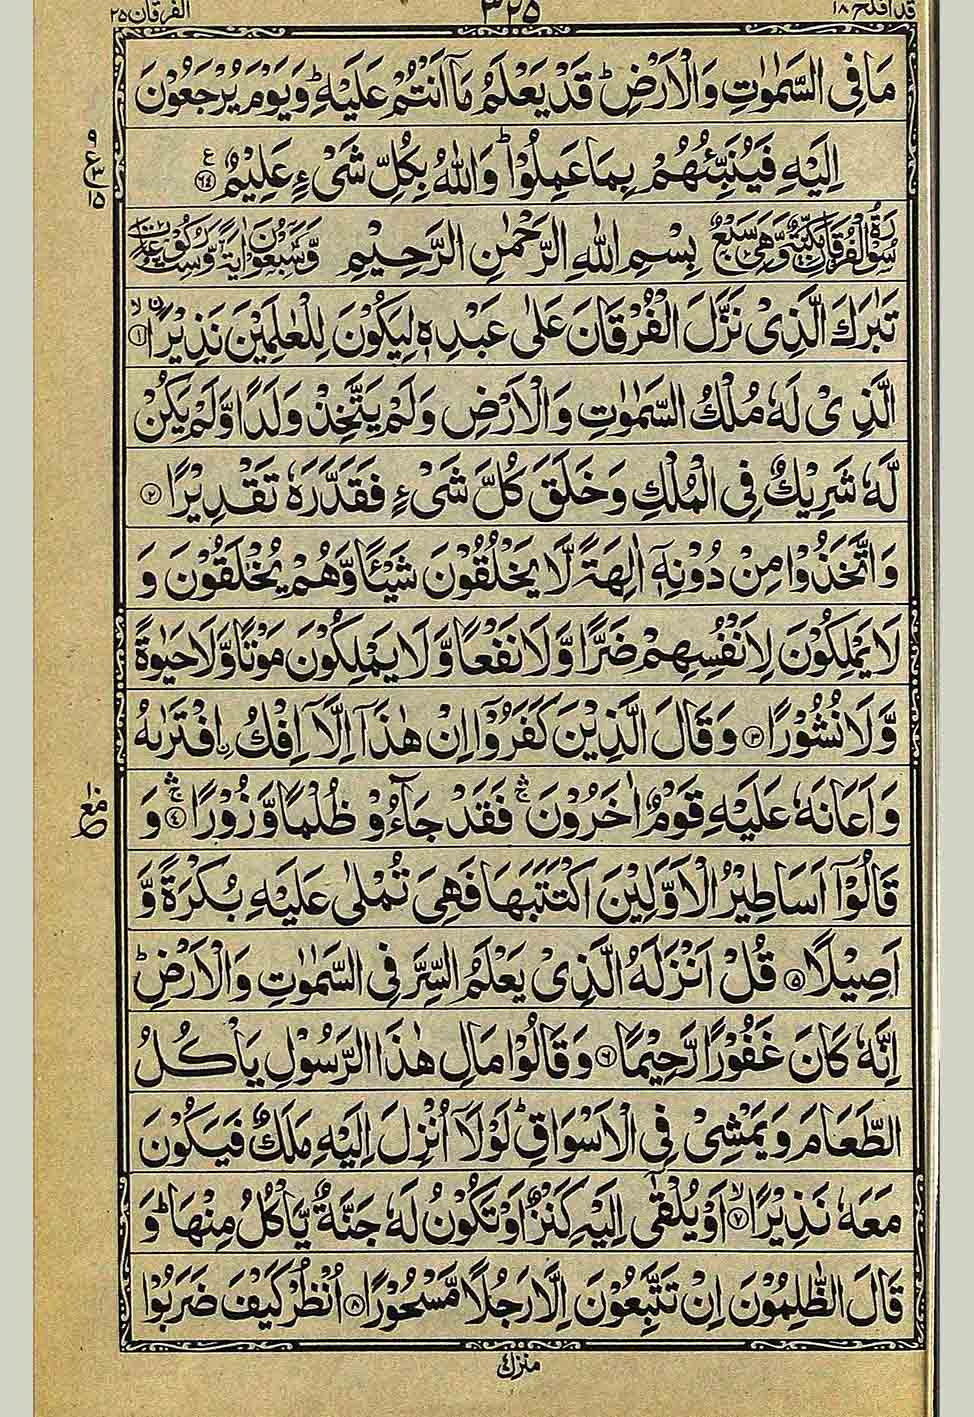 قد افلح ١٨ ٣٢٥ الفرقان ٢٥
مَا فِی السَّمٰوٰتِ وَالْاَرْضِ ؕ قَدْ یَعْلَمُ مَاۤ اَنْتُمْ عَلَیْهِ ؕ وَیَوْمَ یُرْجَعُوْنَ
اِلَیْهِ فَیُنَبِّئُهُمْ بِمَا عَمِلُوْا ؕ وَاللّٰهُ بِكُلِّ شَیْءٍ عَلِیْمٌ ۧ ﴿٦٤﴾
٩
ع
٣
١٥
سُوْرَةُ الْفُرْقَانِ مَكِّیَّةٌ وَّهِیَ سَبْعٌ بِسْمِ اللّٰهِ الرَّحْمٰنِ الرَّحِیْمِ وَّسَبْعُوْنَ اٰیَةً وَّسِتُّ رُكُوْعَاتٍ
تَبٰرَكَ الَّذِیْ نَزَّلَ الْفُرْقَانَ عَلٰی عَبْدِهٖ لِیَكُوْنَ لِلْعٰلَمِیْنَ نَذِیْرَا ۙ ﴿١﴾
الَّذِیْ لَهٗ مُلْكُ السَّمٰوٰتِ وَالْاَرْضِ وَلَمْ یَتَّخِذْ وَلَدًا وَّلَمْ یَكُنْ
لَّهٗ شَرِیْكٌ فِی الْمُلْكِ وَخَلَقَ كُلَّ شَیْءٍ فَقَدَّرَهٗ تَقْدِیْرًا ﴿٢﴾
وَاتَّخَذُوْا مِنْ دُوْنِهٖۤ اٰلِهَةً لَّا یَخْلُقُوْنَ شَیْـًٔا وَّهُمْ یُخْلَقُوْنَ وَ
لَا یَمْلِكُوْنَ لِاَنْفُسِهِمْ ضَرًّا وَّلَا نَفْعًا وَّلَا یَمْلِكُوْنَ مَوْتًا وَّلَا حَیٰوةً
وَّلَا نُشُوْرًا ﴿٣﴾ وَقَالَ الَّذِیْنَ كَفَرُوْۤا اِنْ هٰذَاۤ اِلَّاۤ اِفْكُ ِ۟افْتَرٰىهُ
وَاَعَانَهٗ عَلَیْهِ قَوْمٌ اٰخَرُوْنَ ۛۚ فَقَدْ جَآءُوْ ظُلْمًا وَّزُوْرًا ۛۚ ﴿٤﴾ وَ
قَالُوْۤا اَسَاطِیْرُ الْاَوَّلِیْنَ اكْتَتَبَهَا فَهِیَ تُمْلٰی عَلَیْهِ بُكْرَةً وَّ
اَصِیْلًا ﴿٥﴾ قُلْ اَنْزَلَهُ الَّذِیْ یَعْلَمُ السِّرَّ فِی السَّمٰوٰتِ وَالْاَرْضِ ؕ
اِنَّهٗ كَانَ غَفُوْرًا رَّحِیْمًا ﴿٦﴾ وَقَالُوْا مَالِ هٰذَا الرَّسُوْلِ یَاْكُلُ
الطَّعَامَ وَیَمْشِیْ فِی الْاَسْوَاقِ ؕ لَوْلَاۤ اُنْزِلَ اِلَیْهِ مَلَكٌ فَیَكُوْنَ
مَعَهٗ نَذِیْرًا ۙ ﴿٧﴾ اَوْ یُلْقٰۤی اِلَیْهِ كَنْزٌ اَوْ تَكُوْنُ لَهٗ جَنَّةٌ یَّاْكُلُ مِنْهَا ؕ وَ
قَالَ الظّٰلِمُوْنَ اِنْ تَتَّبِعُوْنَ اِلَّا رَجُلًا مَّسْحُوْرًا ﴿٨﴾ اُنْظُرْ كَیْفَ ضَرَبُوْا
منزل ٤